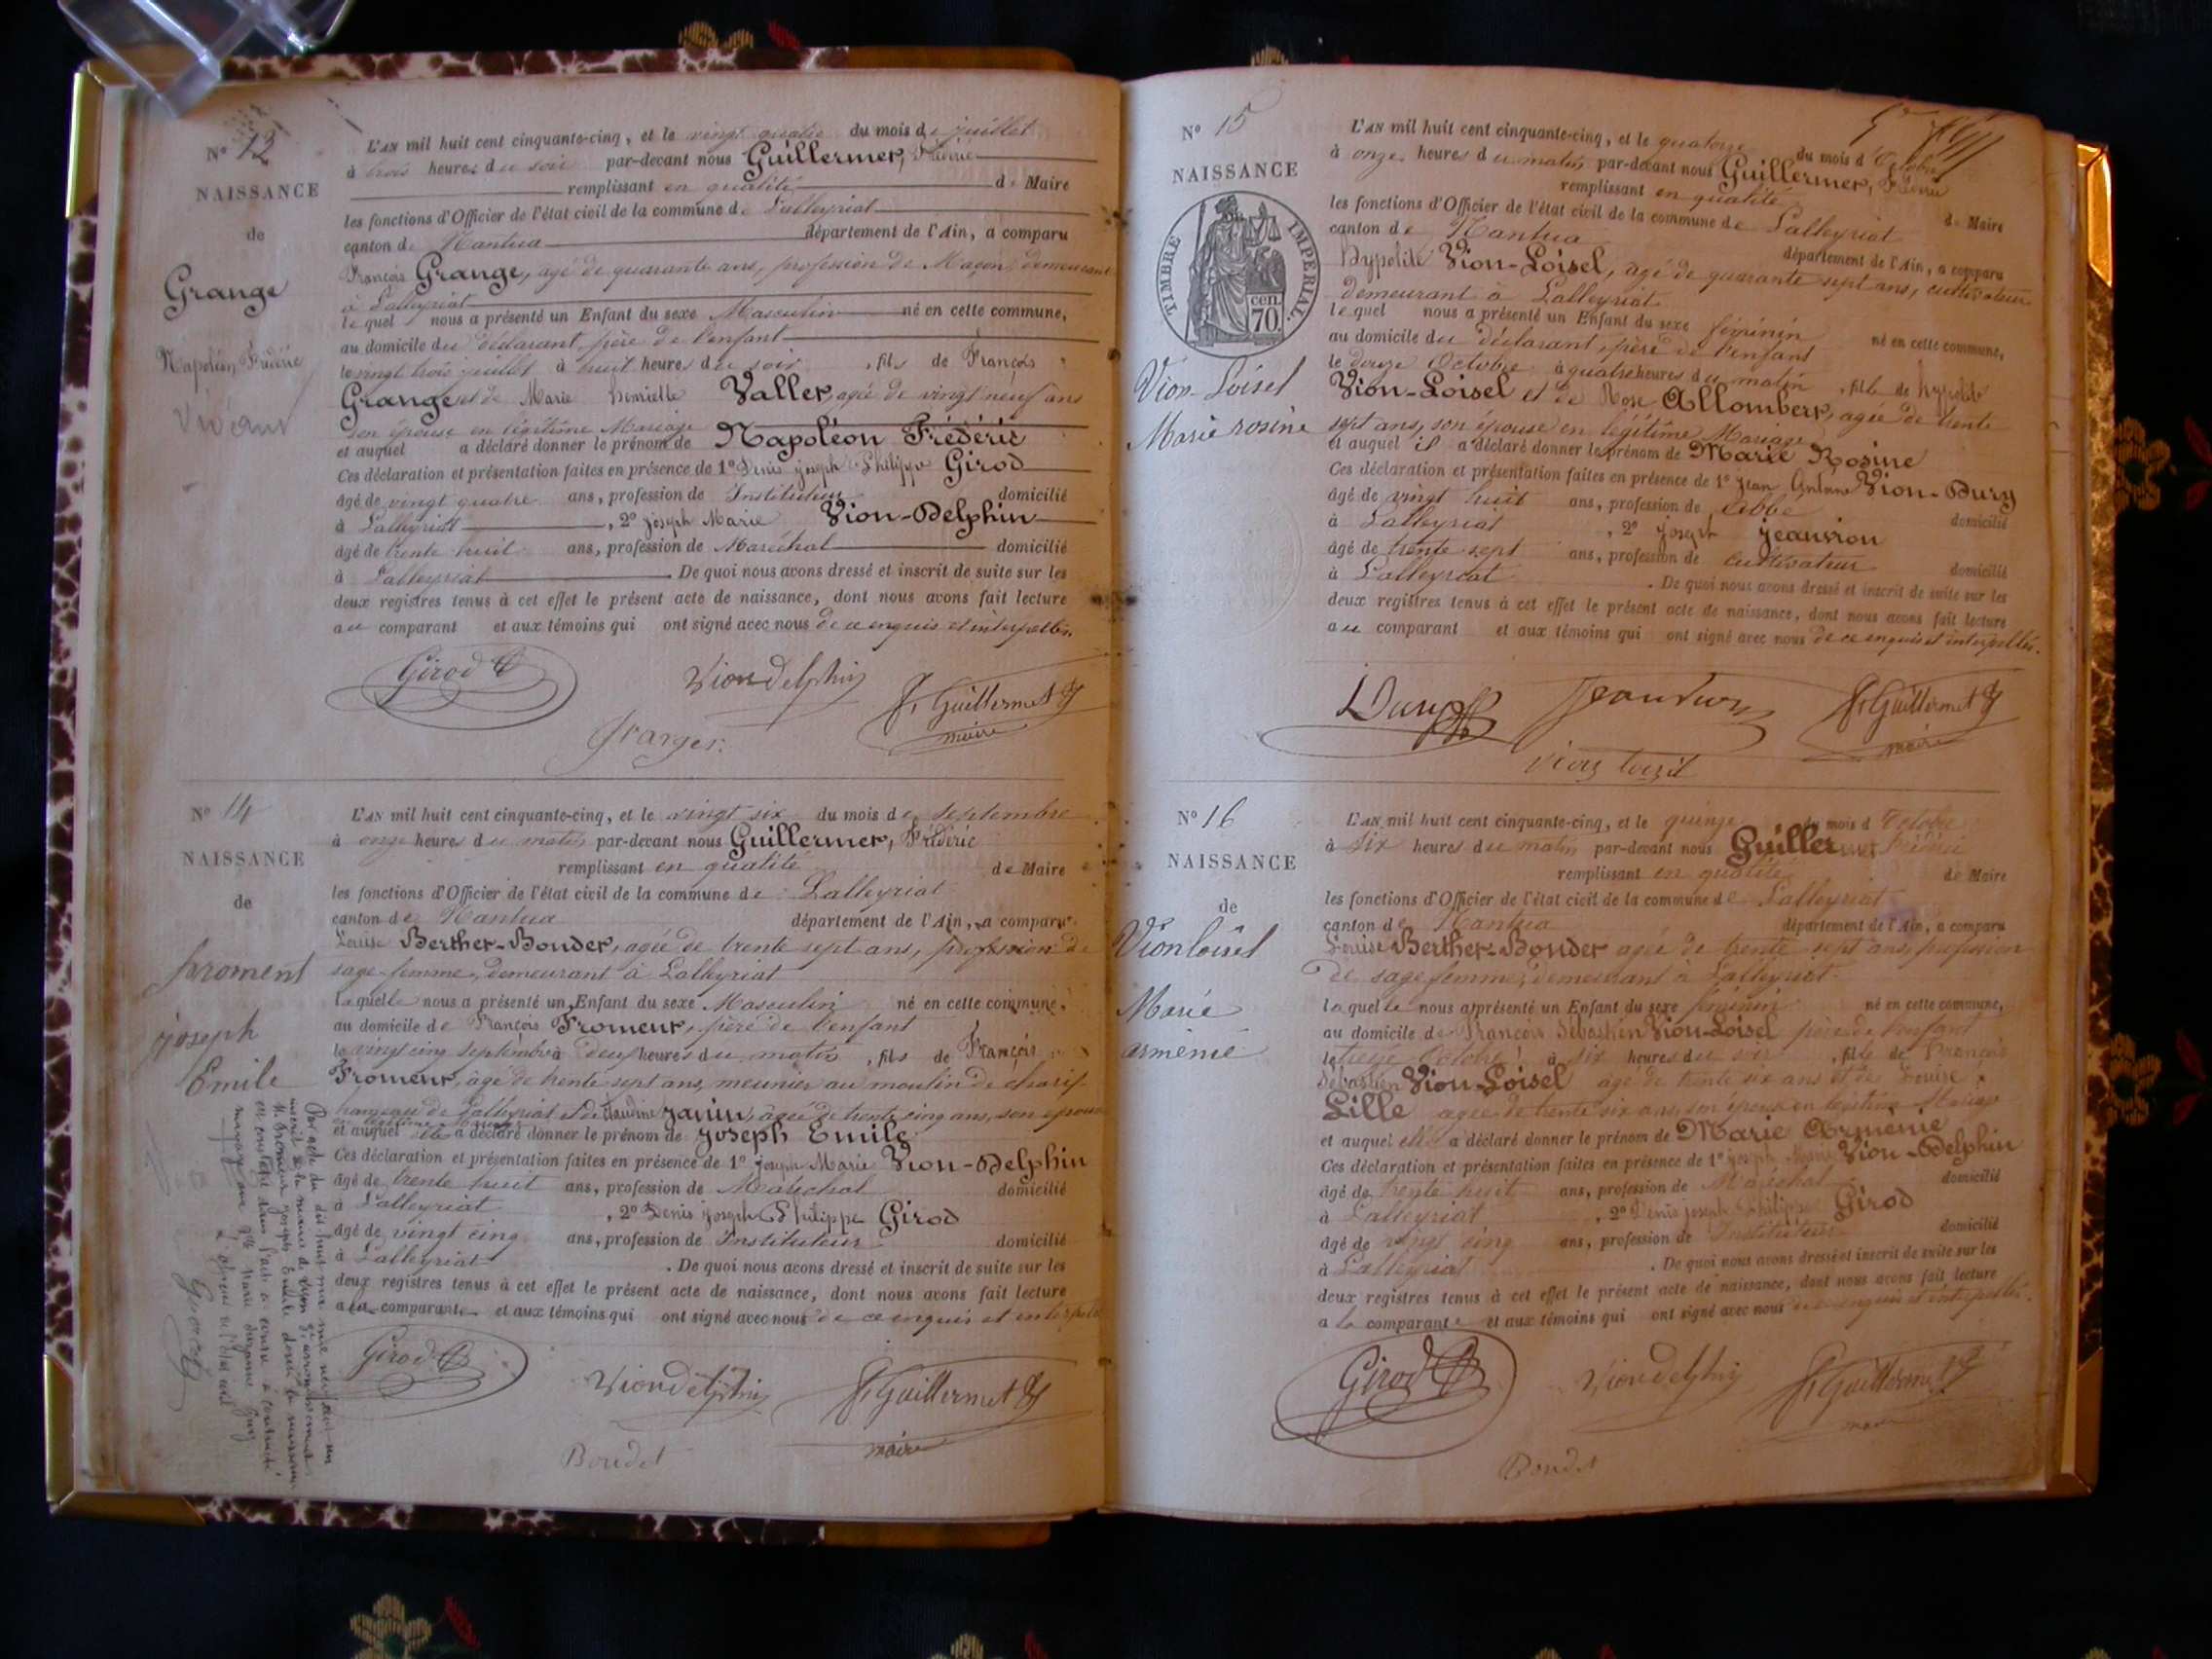 N° 13
NAISSANCE
de
Grange
Napoléon Frédéric
Vivant
L'AN mil huit cent cinquante-cinq, et le vingt quatre du mois de juillet
à trois heures du soir par-devant nous Guillermet, Frédéric
remplissant en qualité de Maire
les fonctions d'Officier de l'état civil de la commune de Lalleyriat
canton de Nantua département de l'Ain, a comparu
François Grange, agé de quarante ans, profession de Maçon, demeurant
à Lalleyriat
lequel nous a présenté un Enfant du sexe Masculin né en cette commune,
au domicile du déclarant, père de l'enfant
le vingt trois juillet à huit heures du soir, fils de François
Grange et de Marie henriette Vallet, agée de vingt neuf ans
son épouse en légitime Mariage
et auquel a déclaré donner le prénom de Napoléon Frédéric
Ces déclaration et présentation faites en présence de 1° Denis joseph Philippe Girod
âgé de vingt quatre ans, profession de Instituteur domicilié
à Lalleyriat, 2° joseph Marie Vion-Delphin
âgé de trente huit ans, profession de Maréchal domicilié
à Lalleyriat. De quoi nous avons dressé et inscrit de suite sur les
deux registres tenus à cet effet le présent acte de naissance, dont nous avons fait lecture
au comparant et aux témoins qui ont signé avec nous de ce enquis et interpellés
Girod
Viondelphin
F. Guillermet
maire
Granger
N° 14
NAISSANCE
de
froment
joseph
Emile
L'AN mil huit cent cinquante-cinq, et le vingt six du mois de septembre
à onze heures du matin par-devant nous Guillermet, Frédéric
remplissant en qualité de Maire
les fonctions d'Officier de l'état civil de la commune de Lalleyriat
canton de Nantua département de l'Ain, a comparu
Louise Berthet-Bondet, agée de trente sept ans, profession de
sage-femme, demeurant à Lalleyriat
laquelle nous a présenté un Enfant du sexe Masculin né en cette commune,
au domicile de François Froment, père de l'enfant
le vingt cinq septembre à deux heures du matin, fils de François
Froment, âgé de trente sept ans, meunier au moulin de charix
hameau de Lalleyriat et de claudine Janin, agée de trente cinq ans, son épouse
en légitime Mariage
et auquel elle a déclaré donner le prénom de Joseph Emile
Ces déclaration et présentation faites en présence de 1° joseph Marie Vion-Delphin
âgé de trente huit ans, profession de Maréchal domicilié
à Lalleyriat, 2° Denis joseph Philippe Girod
âgé de vingt cinq ans, profession de Instituteur domicilié
à Lalleyriat. De quoi nous avons dressé et inscrit de suite sur les
deux registres tenus à cet effet le présent acte de naissance, dont nous avons fait lecture
a la comparante et aux témoins qui ont signé avec nous de ce enquis et interpellés
Par acte du dix huit mai mil neuf cent un
inscrit à la mairie de Lyon arrondissement
M. Froment Joseph Emile dont la naissance
est constatée dans l'acte ci contre a contracté
mariage avec Marie
Girod
Viondelphin
F. Guillermet
maire
Bondet
N° 15
NAISSANCE
TIMBRE IMPERIAL.
cen. 70.
Vion-Loisel
Marie rosine
L'AN mil huit cent cinquante-cinq, et le quatorze du mois d'Octobre
à onze heures du matin par-devant nous Guillermet, Frédéric
remplissant en qualité de Maire
les fonctions d'Officier de l'état civil de la commune de Lalleyriat
canton de Nantua département de l'Ain, a comparu
hypolite Vion-Loisel, agé de quarante sept ans, cultivateur
demeurant à Lalleyriat
lequel nous a présenté un Enfant du sexe féminin né en cette commune,
au domicile du déclarant, père de l'enfant
le douze Octobre à quatre heures du matin, fille de hypolite
Vion-Loisel et de Rose Allombert, agée de trente
sept ans, son épouse en légitime Mariage
et auquel il a déclaré donner le prénom de Marie Rosine
Ces déclaration et présentation faites en présence de 1° Jean Antoine Vion-Dury
âgé de vingt huit ans, profession de abbé domicilié
à Lalleyriat, 2° joseph jeanvion
âgé de trente sept ans, profession de cultivateur domicilié
à Lalleyriat. De quoi nous avons dressé et inscrit de suite sur les
deux registres tenus à cet effet le présent acte de naissance, dont nous avons fait lecture
au comparant et aux témoins qui ont signé avec nous de ce enquis et interpellés.
Dury
Jeanvion
F. Guillermet
maire
vion loisel
N° 16
NAISSANCE
de
Vion loisel
Marie
arménie
L'AN mil huit cent cinquante-cinq, et le quinze du mois d'Octobre
à six heures du matin par-devant nous Guillermet Frédéric
remplissant en qualité de Maire
les fonctions d'Officier de l'état civil de la commune de Lalleyriat
canton de Nantua département de l'Ain, a comparu
Louise Berthet-Bondet agée de trente sept ans, profession
de sage femme, demeurant à Lalleyriat
laquelle nous a présenté un Enfant du sexe féminin né en cette commune,
au domicile de François Sébastien Vion-Loisel père de l'enfant
le treize Octobre à six heures du soir, fille de François
Sébastien Vion-Loisel âgé de trente six ans et de Louise
Lille agée de trente six ans, son épouse en légitime Mariage
et auquel elle a déclaré donner le prénom de Marie Arménie
Ces déclaration et présentation faites en présence de 1° joseph Marie Vion-Delphin
âgé de trente huit ans, profession de Maréchal domicilié
à Lalleyriat, 2° Denis joseph Philippe Girod
âgé de vingt cinq ans, profession de Instituteur domicilié
à Lalleyriat. De quoi nous avons dressé et inscrit de suite sur les
deux registres tenus à cet effet le présent acte de naissance, dont nous avons fait lecture
a la comparante et aux témoins qui ont signé avec nous de ce enquis et interpellés.
Girod
Viondelphin
F. Guillermet
maire
Bondet